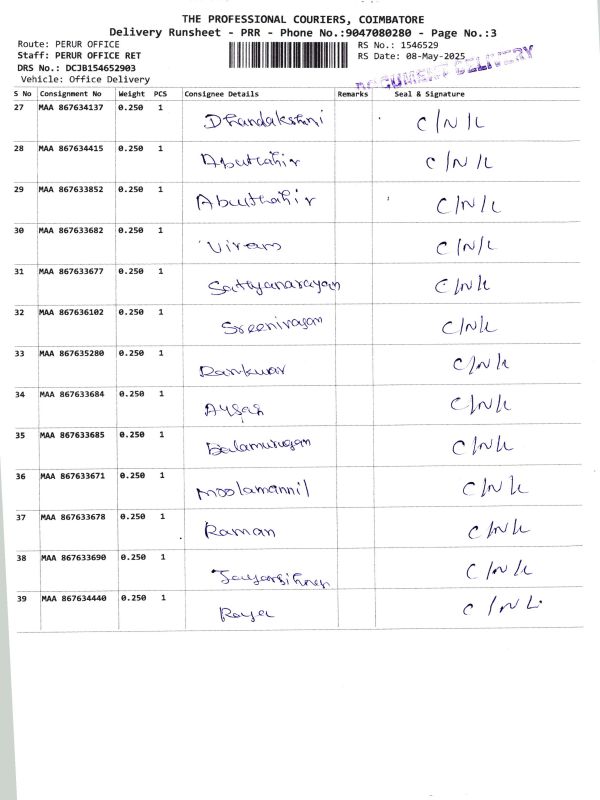 THE PROFESSIONAL COURIERS, COIMBATORE
Delivery Runsheet - PRR - Phone No.:9047080280 - Page No.:3
Route: PERUR OFFICE
RS No.: 1546529
Staff: PERUR OFFICE RET
RS Date: 08-May-2025
DRS No.: DCJB154652903
DOCUMENT DELIVERY
Vehicle: Office Delivery
S No Consignment No Weight PCS Consignee Details Remarks Seal & Signature
27 MAA 867634137 0.250 1 Dhandakshni C/N/L
28 MAA 867634415 0.250 1 Abuthahir C/N/L
29 MAA 867633852 0.250 1 Abuthahir C/N/L
30 MAA 867633682 0.250 1 Viram C/N/L
31 MAA 867633677 0.250 1 Sattyanarayan C/N/L
32 MAA 867636102 0.250 1 Sreenivasan C/N/L
33 MAA 867635280 0.250 1 Ramkumar C/N/L
34 MAA 867633684 0.250 1 C/N/L
35 MAA 867633685 0.250 1 Balamurugan C/N/L
36 MAA 867633671 0.250 1 Moolamannil C/N/L
37 MAA 867633678 0.250 1 Raman C/N/L
38 MAA 867633690 0.250 1 C/N/L
39 MAA 867634440 0.250 1 Raya C/N L.